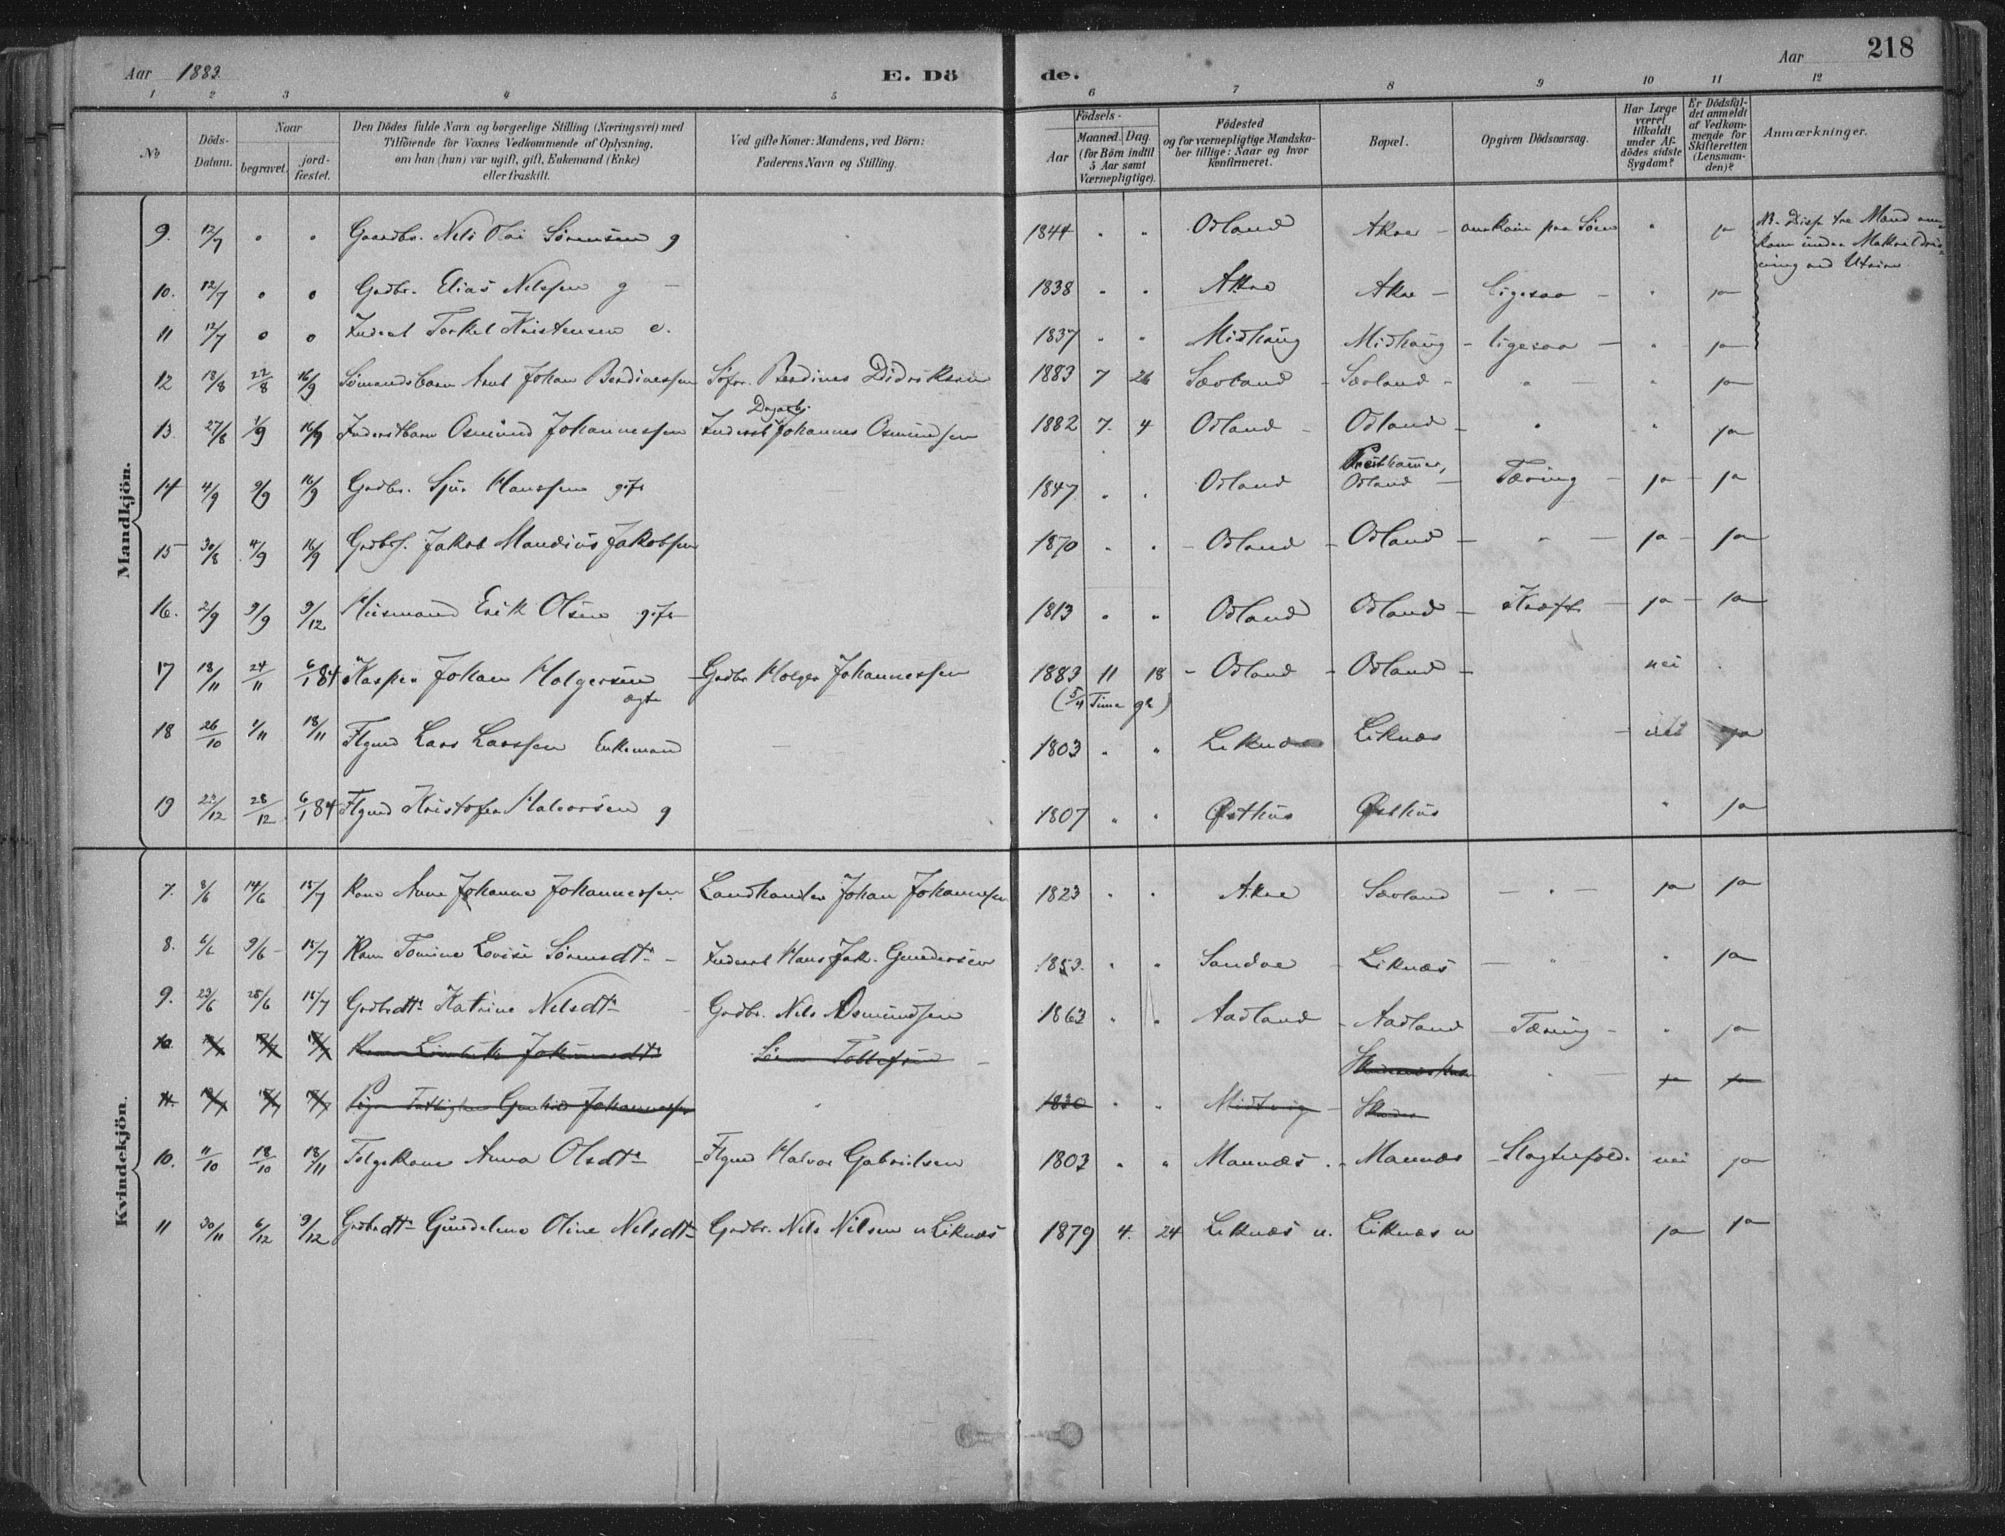 Aar 1883.
E. Dö
de.
Aar
218
1 2 3 4 5 6 7 8 9 10 11 12
No
Döds-Datum.
Naar
begravet.
jord-fæstet.
Den Dödes fulde Navn og borgerlige Stilling (Næringsvei) med
Tilföiende for Voxnes Vedkommende af Oplysning,
om han (hun) var ugift, gift, Enkemand (Enke)
eller fraskilt.
Ved gifte Koner: Mandens, ved Börn:
Faderens Navn og Stilling.
Födsels-
Aar
Maaned. Dag.
(for Börn indtil
5 Aar samt
Værnepligtige).
Födested
og for værnepligtige Mandska-
ber tillige: Naar og hvor
konfirmeret.
Bopæl.
Opgiven Dödsaarsag.
Har Læge
været
tilkaldt
under Af-
dödes sidste
Sygdom?
Er Dödsfal-
det anmeldt
af Vedkom-
mende for
Skifteretten
(Lensman-
den)?
Anmærkninger.
Mandkjön.
9. 12/7 " " Gaardbr. Nels Olai Sörensen g 1844 " " Odland Akre - omkom paa Söen " ja NB. Disp. tre Mænd om-
kom under
ved Utsire
10. 12/7 " " Grdbr. Elias Nelssen g - 1838 " " Akre Akre - ligesaa - " ja
11 12/7 " " Inderst Torkel Kristensen e. 1837 " " Midhaug Midhaug - ligesaa - " ja
12 18/8 22/8 16/9 Sömandsbarn Arnt Johan Berdinessen Sofor. Berdines Didriksen 1883 7 26 Sævland - Sævland - " - " ja
13. 27/8 1/9 16/9 Inderstbarn Osmund Johannessen Inderst Dagarb. Johannes Osmundsen 1882 7. 4 Odland - Odland - " " ja
14 4/9 9/9 16/9 Grdbr. Sjur Hanssen gift 1847 " " Odland Præsthammer, Odland - Tæring - ja - ja
15 30/8 4/9 16/9 Grdbrs. Jakob Mandius Jakobsen 1870 " " - Odland - Odland - " - ja - ja
16. 2/9 9/9 9/12 Husmand Erik Olsen gift 1813 " " Odland Odland - Kræft - ja - ja
17 18/11 24/11 6/1 84 Kasper Johan Holgersen ægte - Grdbr Holger Johannessen 1883 11 18 - Odland - Odland - nei .
(5/4 Time gl.)
18 26/10 1/11 18/11 Flgmd Lars Larssen Enkemand 1803 " " Liknæs Liknæs - ja
19 22/12 28/12 6/1 84 Flgmd Kristofer Halvorsen g 1807 " " Østhus Østhus " ja
Kvindekjön.
7. 8/6 14/6 15/7 Kone Anne Johanne Johannessen Landhandler Johan Johannessen 1823 " " Akre Sævland - " - ja ja
8. 6/6 9/6 - 15/7 Kone Tomine Lovise Sörensdtr - Inderst Hans Jak. Gundersen 1853. " " Sandve - Liknæs - " " ja
9. 23/6 28/6 15/7 Grdbrdtr Katrine Nelsdtr - Grdbr. Nels Osmundsen 1863 " " Aadland - Aadland - Tæring - " ja
10. Kone Johannesdtr Sören Tollefsen -
11. Pige Johannessen " 1830 " " Midtvig - ja ja
10. 11/10 18/10 18/11 Folgekone Anna Olsdtr - Flgmd Halvor Gabrielsen 1803 " " Mannæs - Mannæs - Slagtilfæld. nei ja
11 30/11 6/12 9/12 Grdbrdtr Gundeline Oline Nelsdtr Grdbr. Nels Nilsen n Liknæs 1879 4. 24 Liknæs n. Liknæs n ja ja